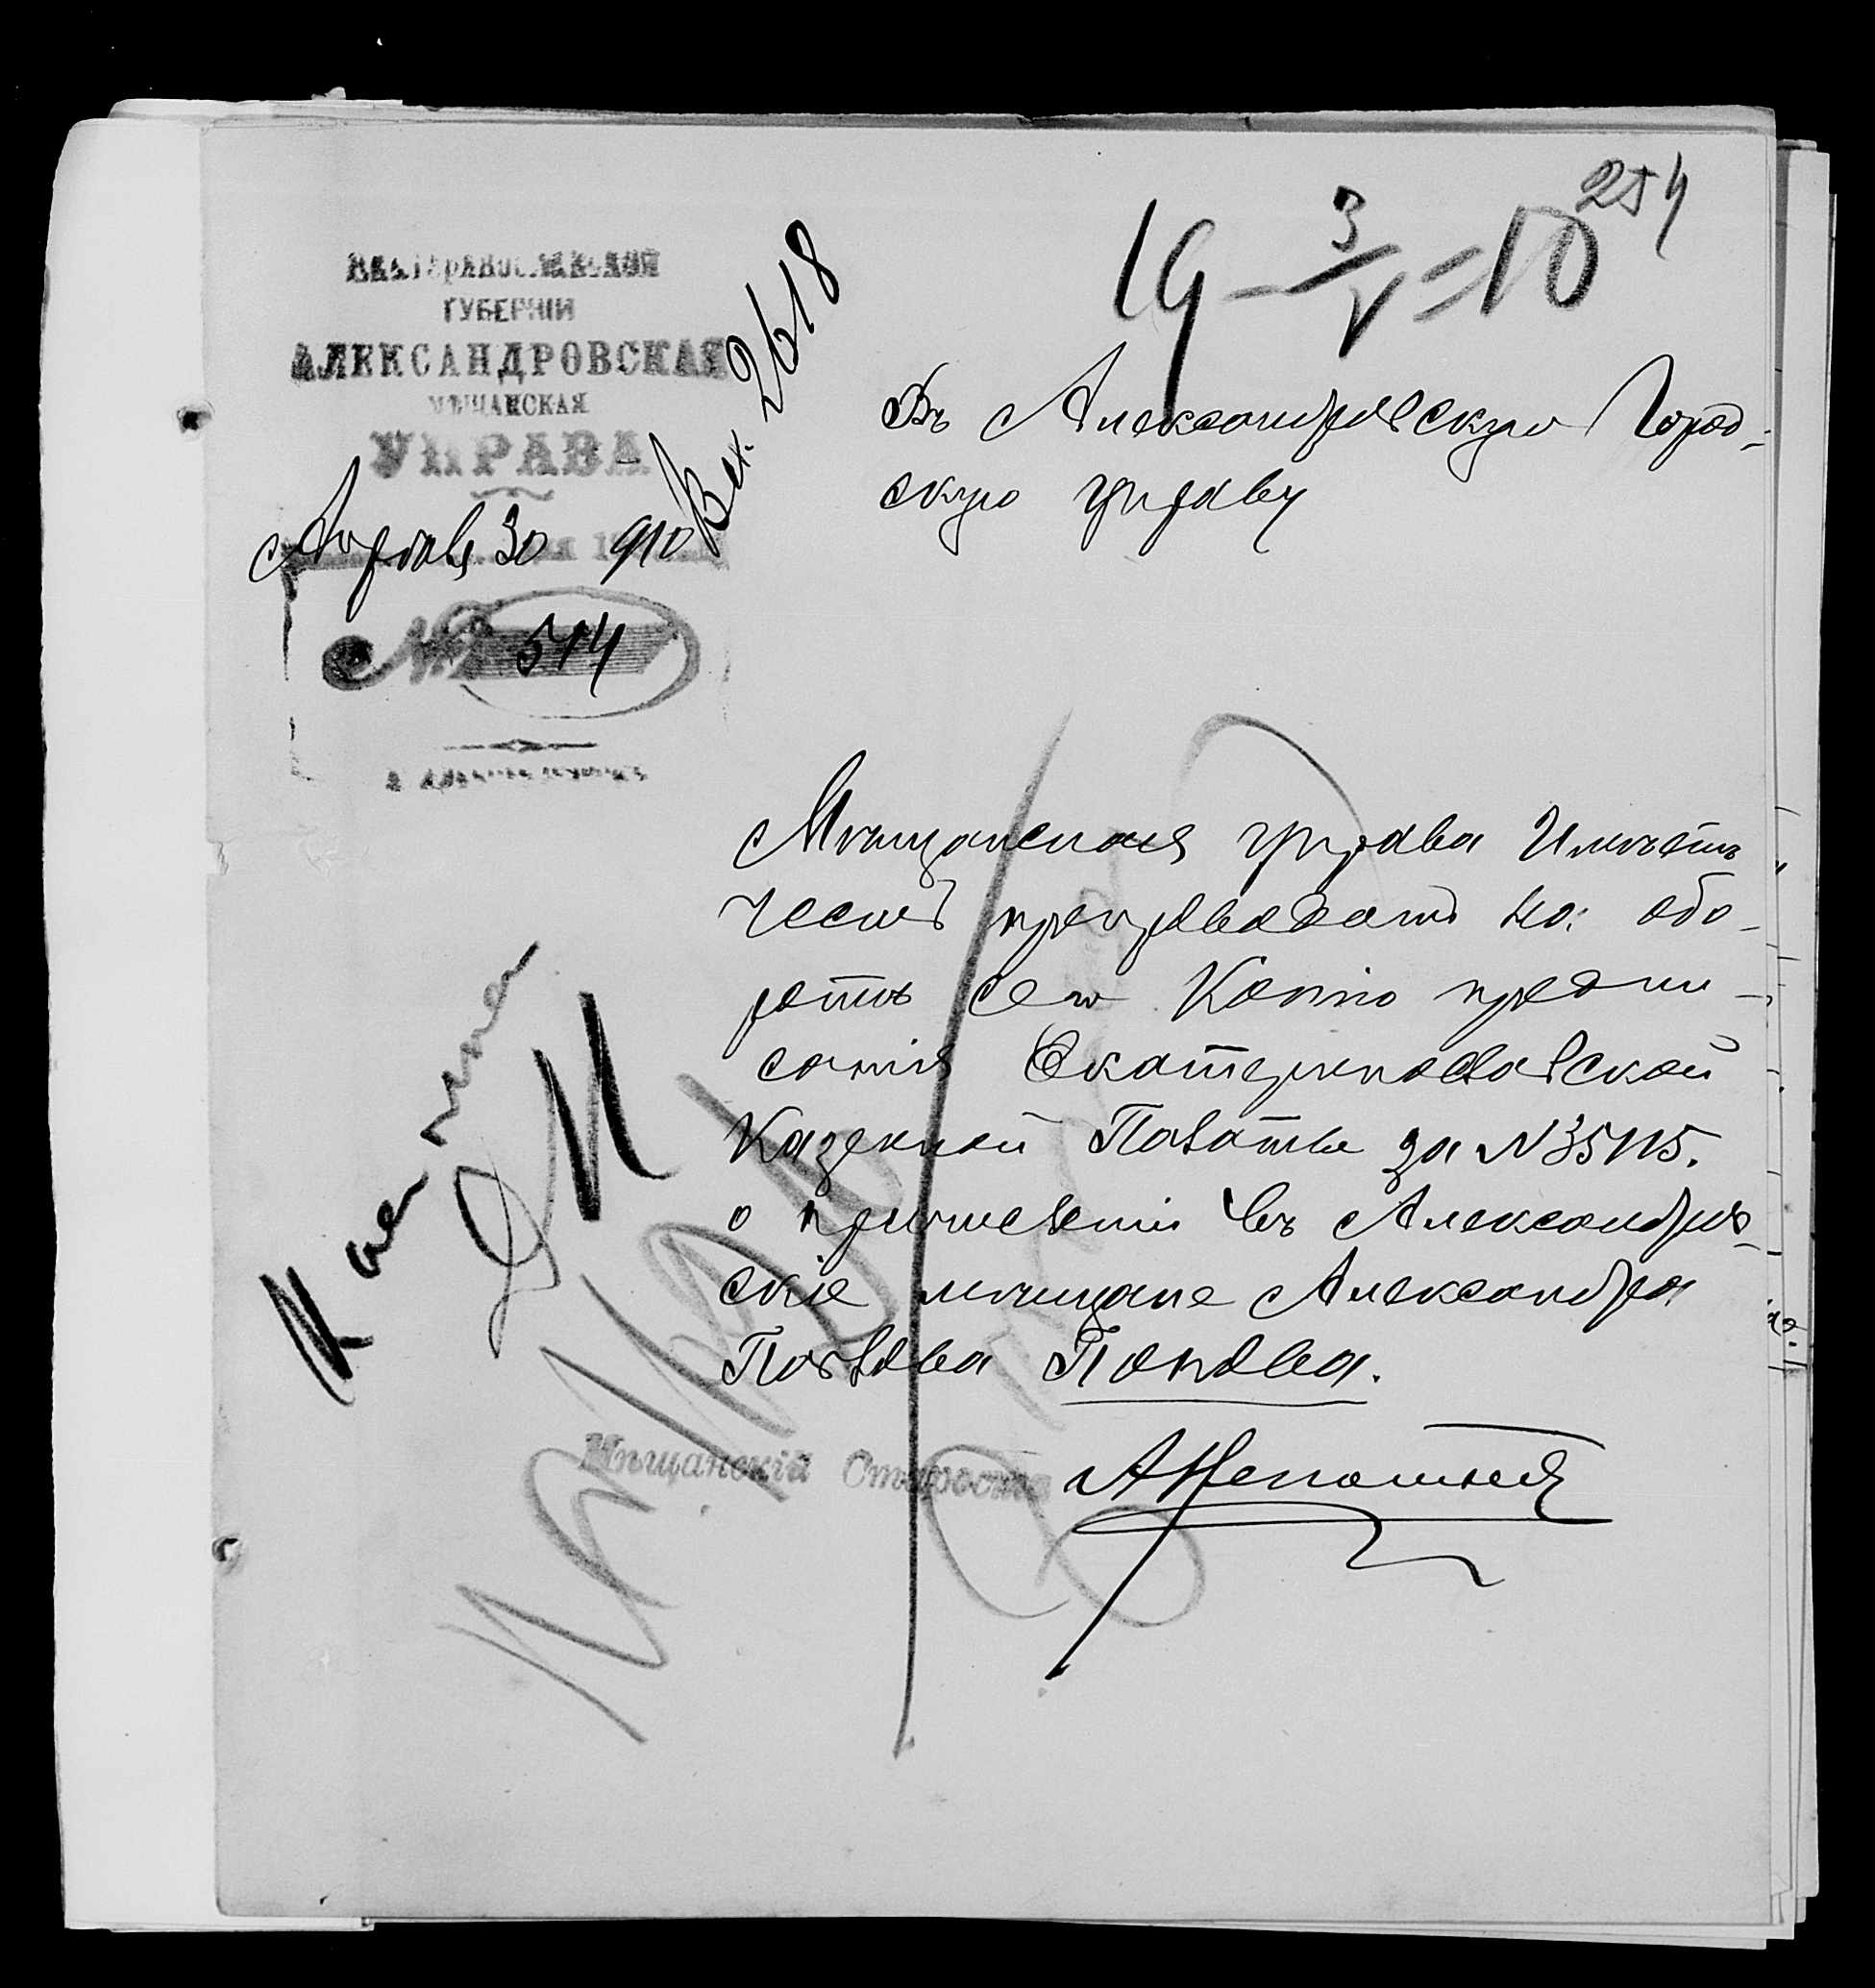 254
19 - 3/V = 10
ЕКАТЕРИНОСЛАВСКОЙ
ГУБЕРНІИ
АЛЕКСАНДРОВСКАЯ
МѢЩАНСКАЯ
УПРАВА
Апрѣля 30 910
№ 514
Вх. 2618
Въ Александровскую Город-
скую управу
Мѣщанская управа Имѣетъ
честь препроводить на обо-
ротѣ сего Копію предпи-
санія Екатеринославской
Казенной Палаты за № 35115.
о причисленіи въ Александров-
скіе мѣщане Александра
Павлова Попова.
Мѣщанскій Староста